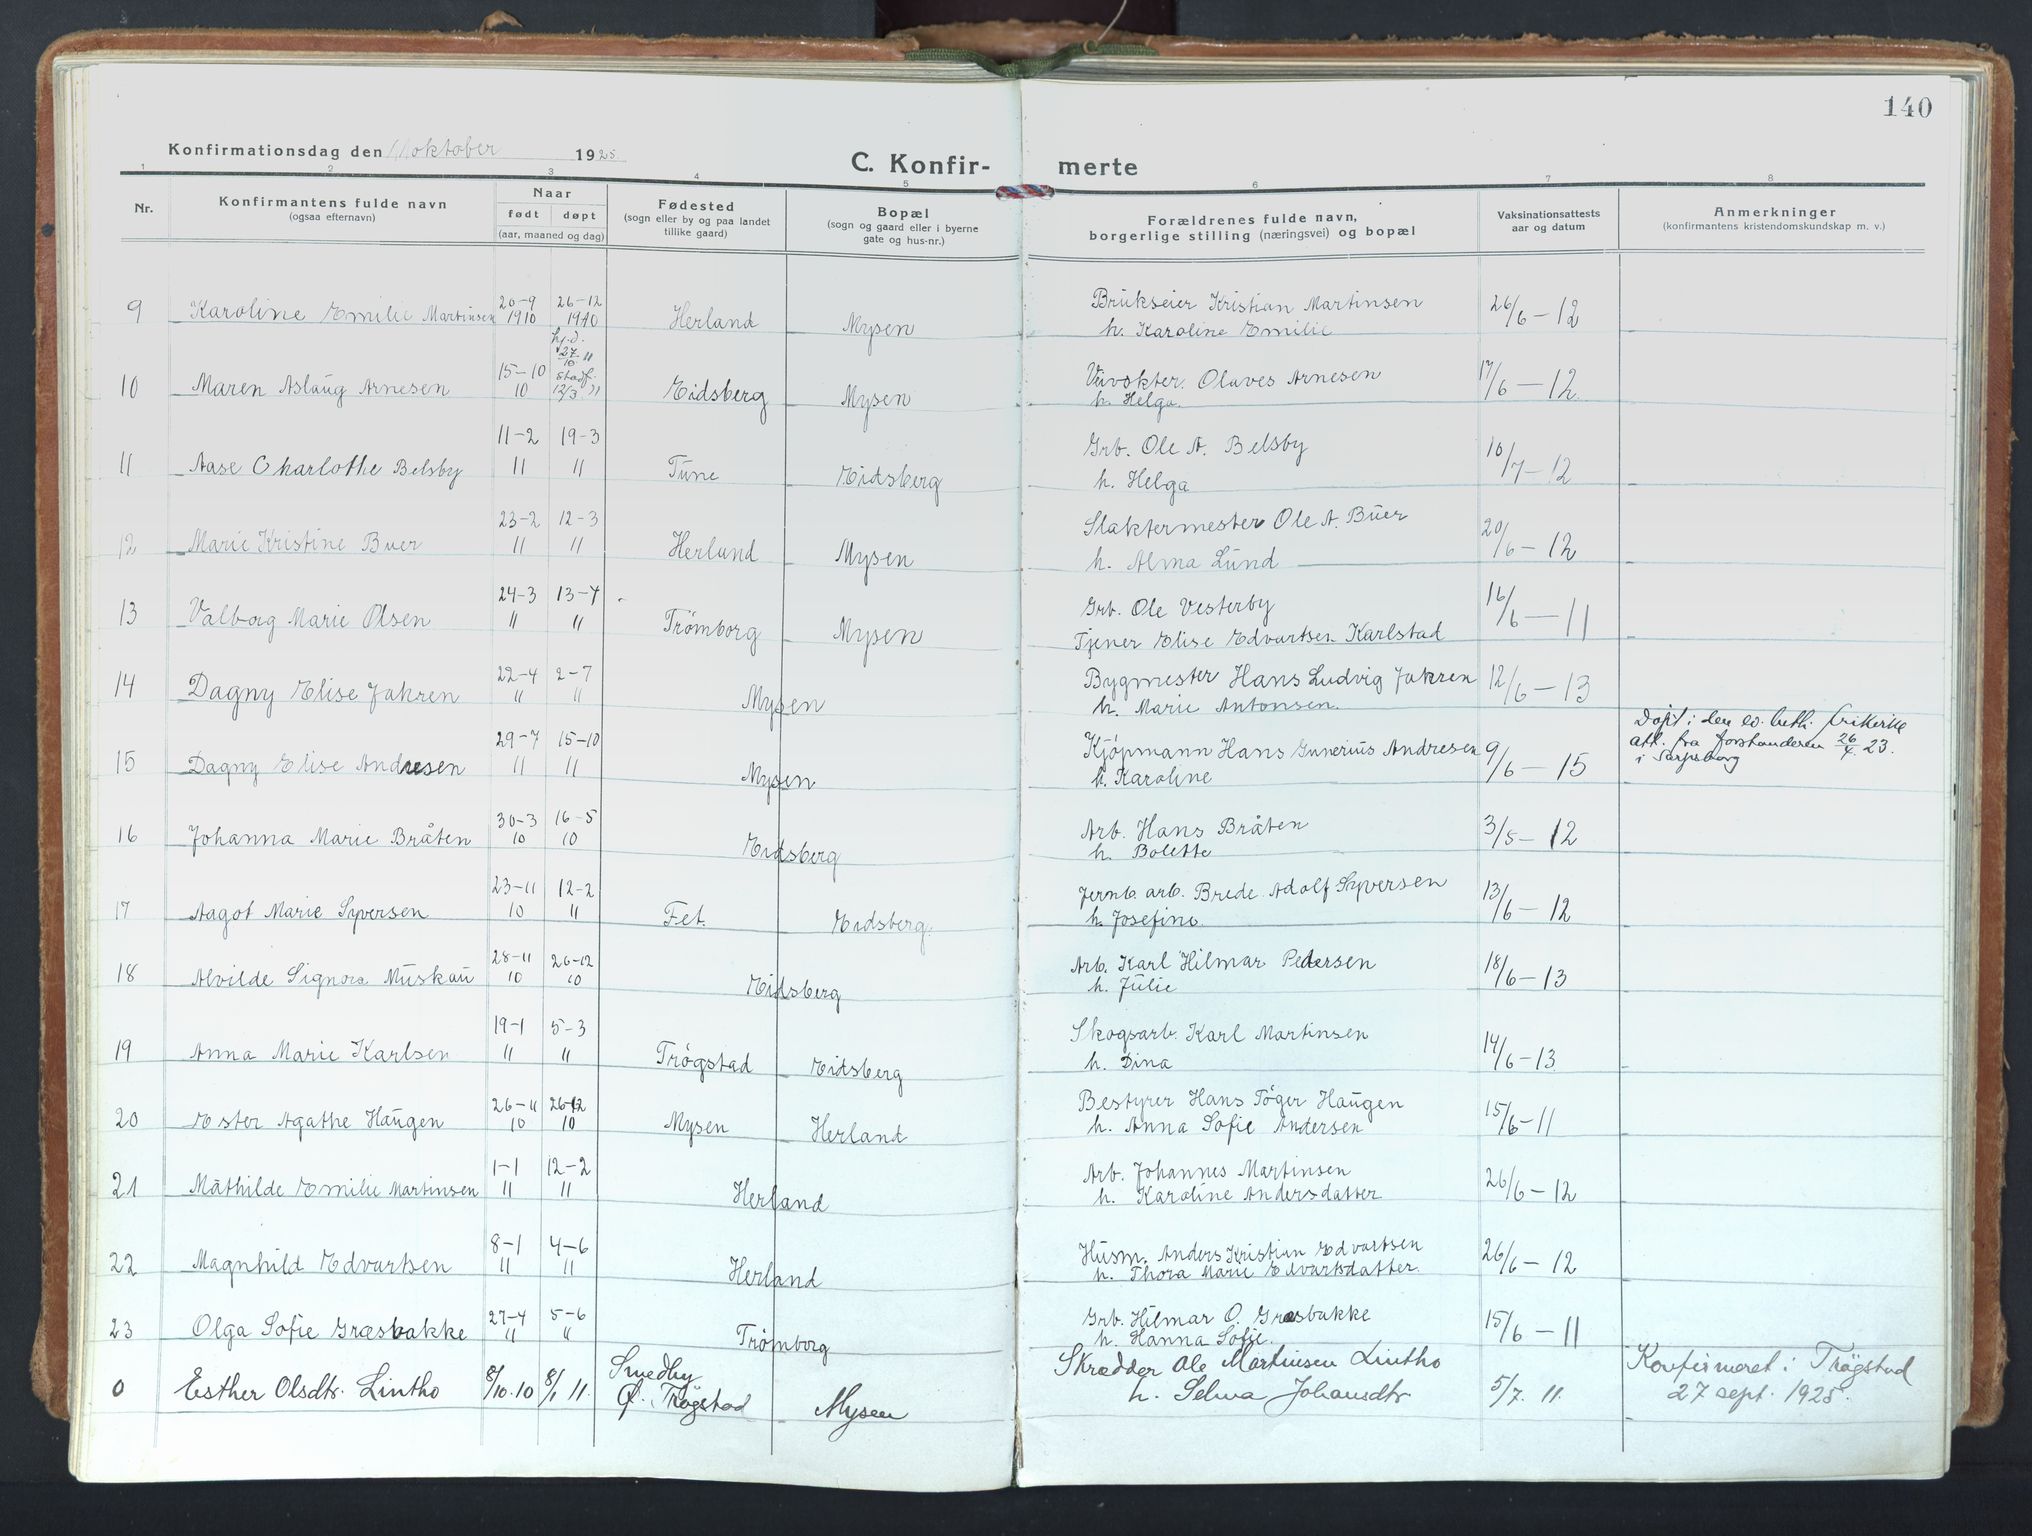 140
Konfirmationsdag den 11 oktober 1925.
C. Konfir- merte
1 2 3 4 5 6 7 8
Nr.
Konfirmantens fulde navn
(ogsaa efternavn)
Naar
født døpt
(aar, maaned og dag)
Fødested
(sogn eller by og paa landet
tillike gaard)
Bopæl
(sogn og gaard eller i byerne
gate og hus-nr.)
Forældrenes fulde navn,
borgerlige stilling (næringsvei) og bopæl
Vaksinationsattests
aar og datum
Anmerkninger
(konfirmantens kristendomskundskap m. v.)
9 Karoline Emilie Martinsen 20-9 1910 26-12 1910 Herland Mysen Brukseier Kristian Martinsen 26/6-12
h. Karoline Emilie
10 Maren Aslaug Arnesen 15-10 10 hj.d. 27/10 " stadf. 12/3 11 Eidsberg Mysen Olaves Arnesen 17/6-12
h. Helga.
11 Aase Charlothe Belsby 11-2 11 19-3 11 Tune Eidsberg Grb. Ole A. Belsby 10/7-12
h. Helga
12 Marie Kristine Buer 23-2 11 12-3 11 Herland Mysen Slaktermester Ole A. Buer 20/6-12
h. Alma Lund
13 Valborg Marie Olsen 24-3 " 13-4 " Trømborg Mysen Grb. Ole Vesterby 16/6-11
Tjener Elise Edvartsen Karlstad
14 Dagny Elise Jahren 22-4 " 2-7 " Mysen Bygmester Hans Ludvig Jahren 12/6-13
h. Marie Antonsen.
15 Dagny Elise Andresen 29-7 11 15-10 11 Mysen Kjøpmann Hans Gunerius Andresen 9/6-15 Døpt i den ev. luth. frikirke
h. Karoline att. fra forstanderen 26/4 23.
i Sarpsborg
16 Johanna Marie Bråten 30-3 10 16-5 10 Eidsberg Arb. Hans Bråten 3/5-12
h. Bolette
17 Aagot Marie Syversen 23-11 10 12-2 11 Fet. Eidsberg. Jernb. arb. Brede Adolf Syversen 13/6-12
h. Josefine.
18 Alvilde Signora Muskau 28-11 10 26-12 10 Eidsberg Arb. Karl Hilmar Pedersen 18/6-13
h. Julie
19 Anna Marie Karlsen 19-1 11 5-3 11 Trøgstad Eidsberg Skogsarb. Karl Martinsen 14/6-13
h. Dina
20 Ester Agathe Haugen 26-11 10 26-12 10 Mysen Herland Bestyrer Hans Tøger Haugen 15/6-11
h. Anna Sofie Andersen
21 Mathilde Emilie Martinsen 1-1 11 12-2 11 Herland Arb. Johannes Martinsen 26/6-12
h. Karoline Andersdatter
22 Magnhild Edvartsen 8-1 11 4-6 11 Herland Husm. Anders Kristian Edvartsen 26/6-12
h. Thora Marie Edvartsdatter.
23 Olga Sofie Græsbakke 27-4 11 5-6 " Trømborg Grb. Hilmar O. Græsbakke 15/6-11
h. Hanna Sofie.
0 Esther Olsdtr. Lintho 8/10.10 8/1 11. Smedby Ø. Trøgstad Mysen Skrædder Ole Martinsen Lintho 5/7. 11. Konfirmeret i Trøgstad
h. Selma Johansdtr 27 sept. 1925.